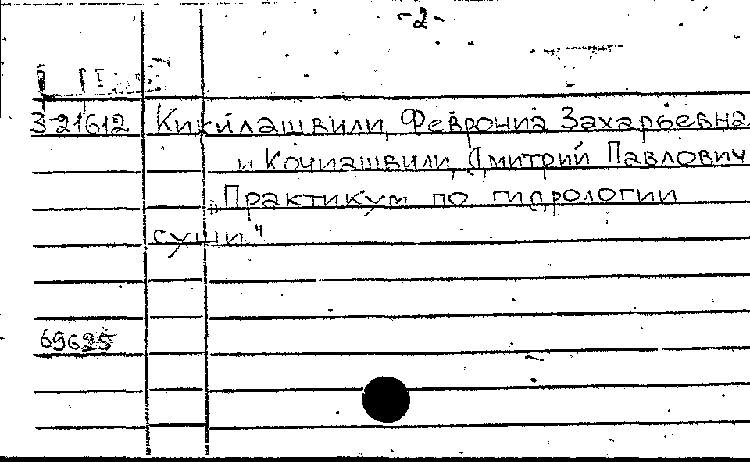 -2-
З-21612 Кикилашвили, Феврониа Захарьевна
и Кочиашвили, Дмитрий Павлович
„Практикум по гидрологии
суши"
69625